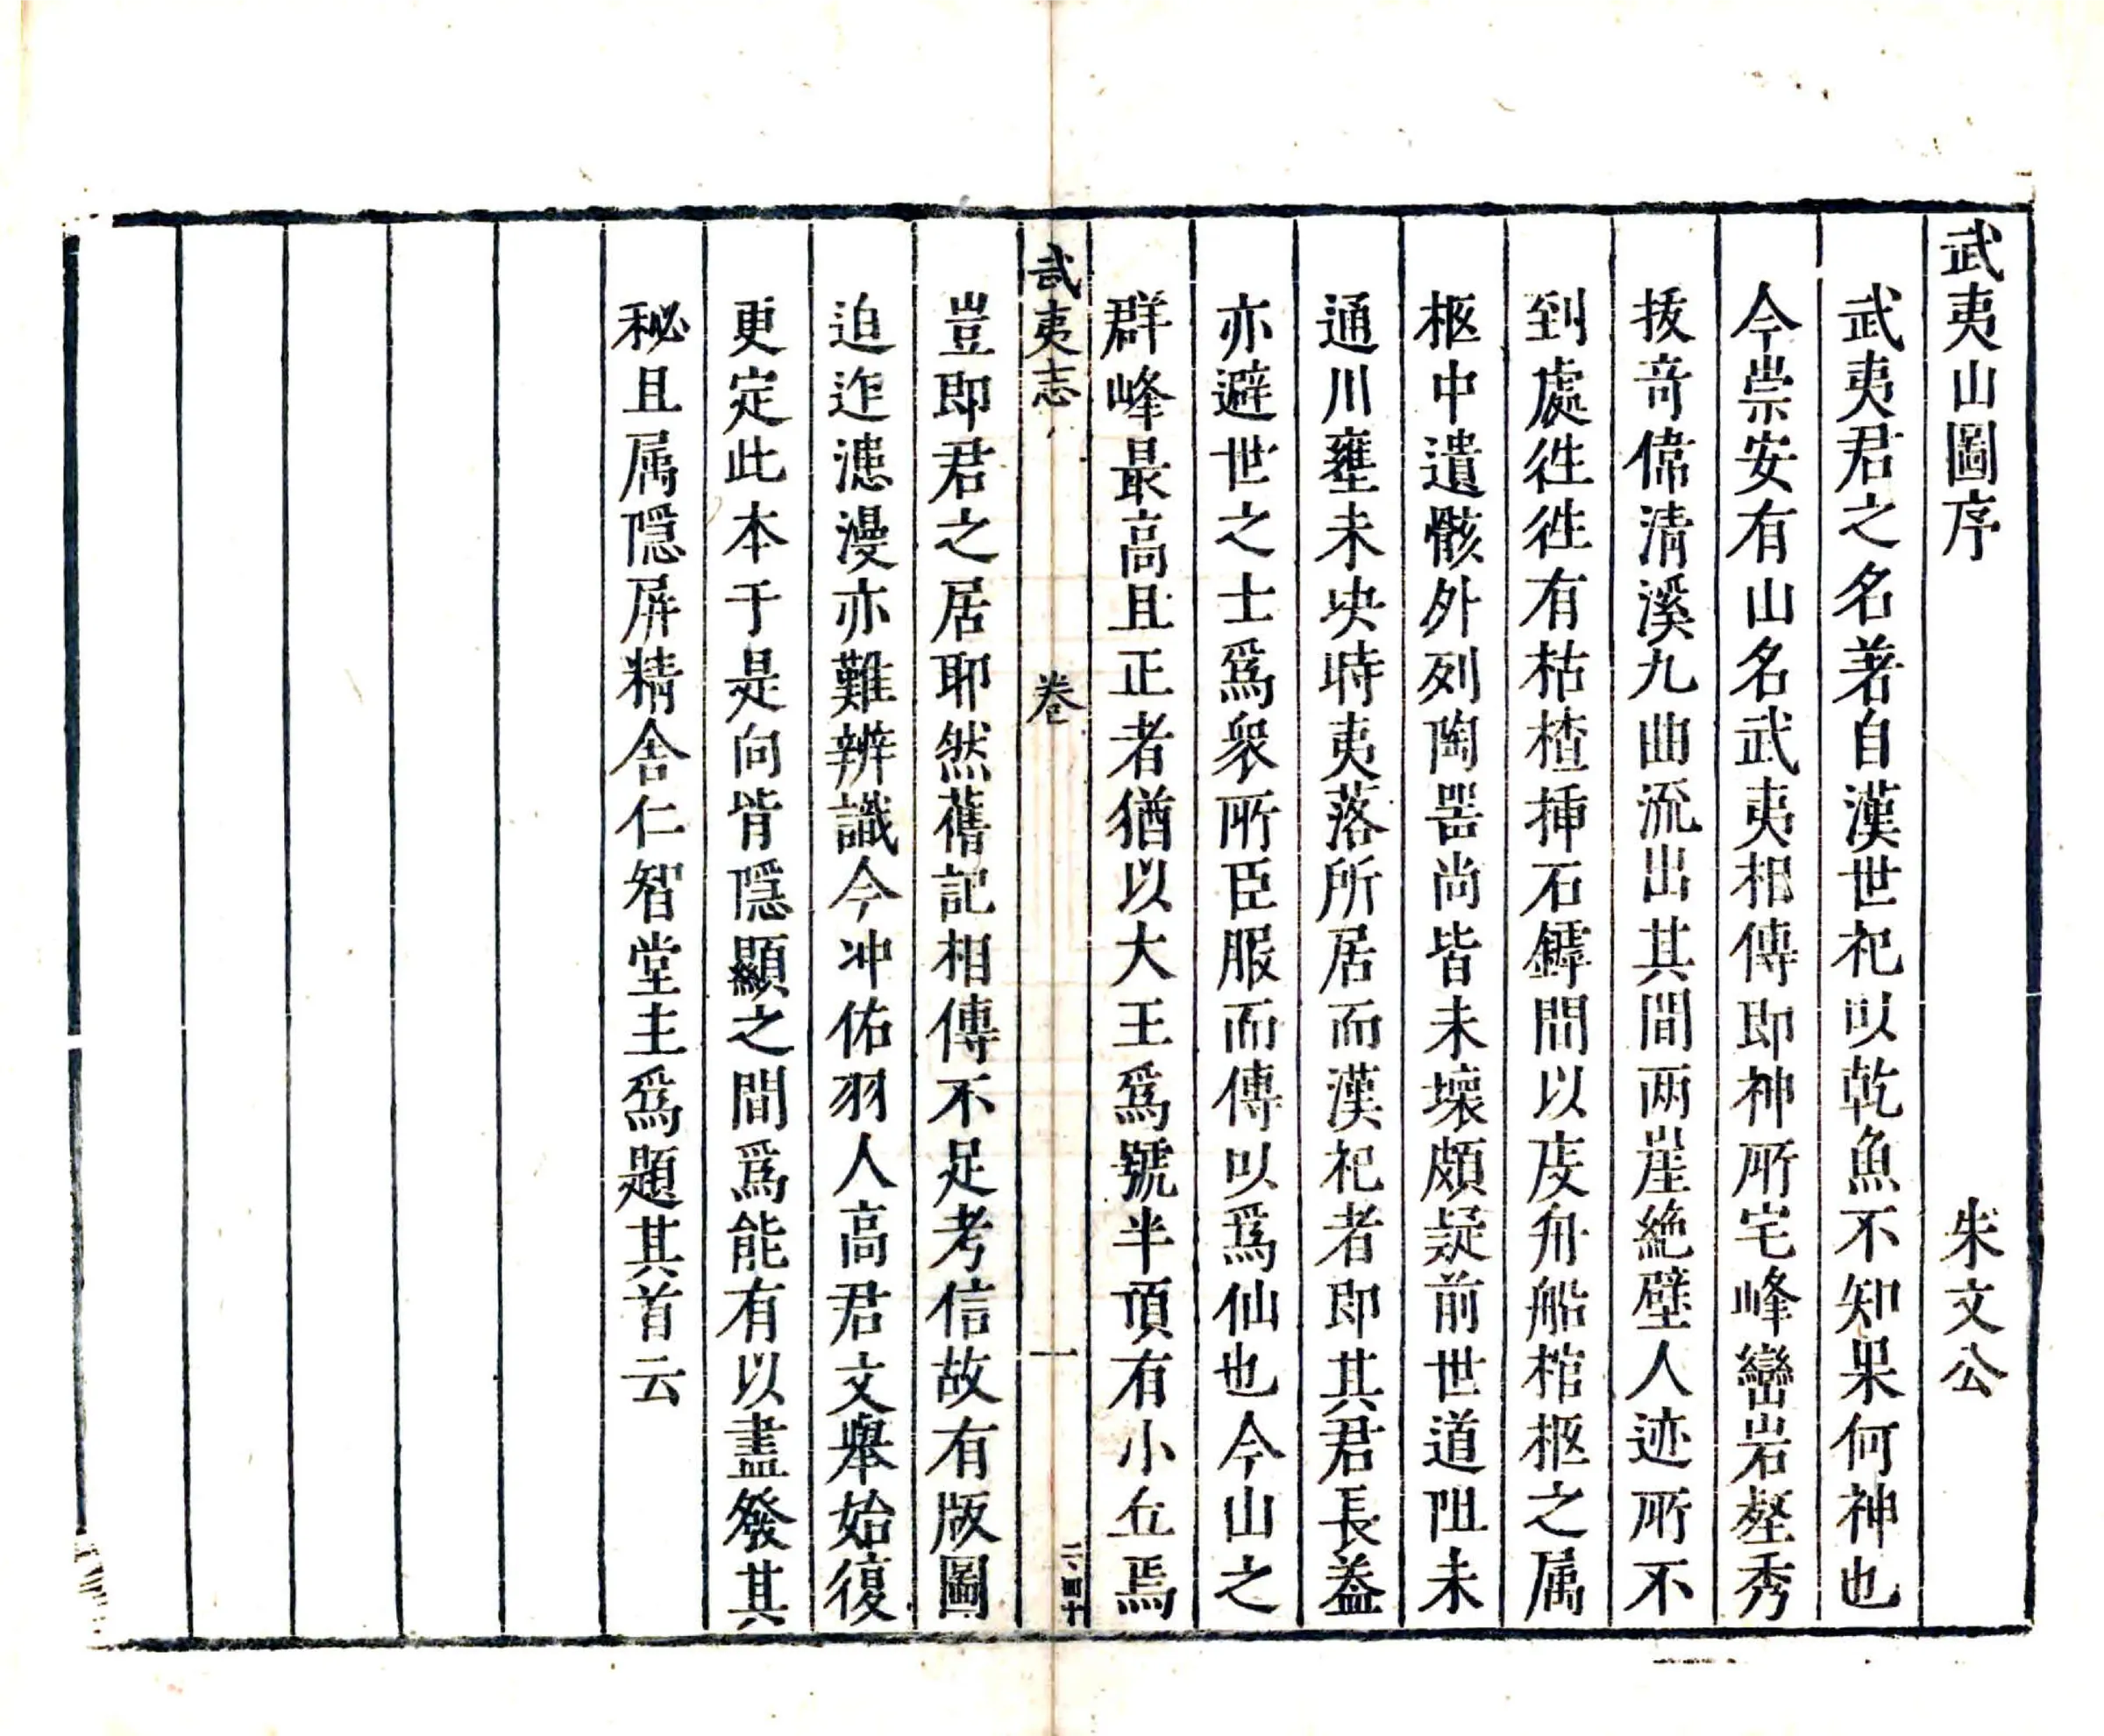 武夷山圖序 朱文公
武夷君之名著自漢世祀以乾魚不知果何神也
今崇安有山名武夷相傳即神所宅峰巒岩壑秀
拔奇偉清溪九曲流出其間两崖絶壁人迹所不
到處徃徃有枯楂揷石罅間以庋舟船棺柩之属
柩中遺骸外列陶噐尚皆未壞頗疑前世道阻未
通川壅未决時夷落所居而漢祀者即其君長盖
亦避世之士爲衆所臣服而傳以爲仙也今山之
群峰最高且正者猶以大王爲號半頂有小丘焉
武夷志 卷 一
豈即君之居耶然舊記相傳不足考信故有版圖
迫迮漶漫亦難辨識今冲佑羽人高君文舉始復
更定此本于是向背隱顯之間爲能有以盡發其
秘且属隱屏精舍仁智堂主爲題其首云